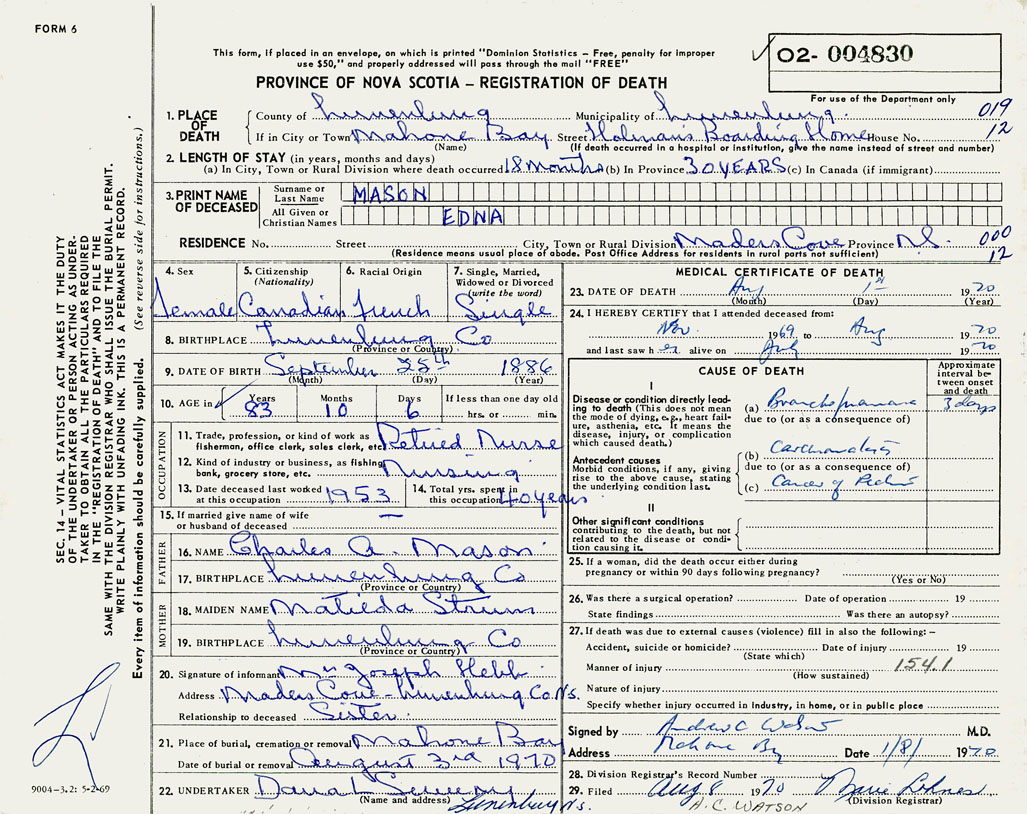 FORM 6
This form, if placed in an envelope, on which is printed "Dominion Statistics – Free, penalty for improper
use $50," and properly addressed will pass through the mail "FREE"
PROVINCE OF NOVA SCOTIA – REGISTRATION OF DEATH
02- 004830
For use of the Department only
1. PLACE OF DEATH
County of Lunenburg Municipality of Lunenburg 019
If in City or Town Mahone Bay Street Holman's Boarding Home House No. 12
(Name) (If death occurred in a hospital or institution, give the name instead of street and number)
2. LENGTH OF STAY (in years, months and days)
(a) In City, Town or Rural Division where death occurred 18 Months (b) In Province 30 YEARS (c) In Canada (if immigrant)
3. PRINT NAME OF DECEASED
Surname or Last Name MASON
All Given or Christian Names EDNA
RESIDENCE No. Street City, Town or Rural Division Maders Cove Province N.S. 000
(Residence means usual place of abode. Post Office Address for residents in rural parts not sufficient) 12
4. Sex
Female
5. Citizenship
(Nationality)
Canadian
6. Racial Origin
French
7. Single, Married,
Widowed or Divorced
(write the word)
Single
8. BIRTHPLACE Lunenburg Co
(Province or Country)
9. DATE OF BIRTH September 25th 1886
(Month) (Day) (Year)
10. AGE in
Years Months Days If less than one day old
83 10 6 hrs. or min.
OCCUPATION
11. Trade, profession, or kind of work as
fisherman, office clerk, sales clerk, etc. Retired Nurse
12. Kind of industry or business, as fishing,
bank, grocery store, etc. Nursing
13. Date deceased last worked
at this occupation 1953
14. Total yrs. spent in
this occupation 40 years
15. If married give name of wife
or husband of deceased —
FATHER
16. NAME Charles A. Mason
17. BIRTHPLACE Lunenburg Co
(Province or Country)
MOTHER
18. MAIDEN NAME Matilda Strum
19. BIRTHPLACE Lunenburg Co
(Province or Country)
20. Signature of informant Mrs Joseph Hebb
Address Maders Cove - Lunenburg Co N.S.
Relationship to deceased Sister
21. Place of burial, cremation or removal Mahone Bay
Date of burial or removal August 3rd 1970
22. UNDERTAKER Dana L Sweeny
(Name and address) Lunenburg N.S.
MEDICAL CERTIFICATE OF DEATH
23. DATE OF DEATH Aug 1st 1970
(Month) (Day) (Year)
24. I HEREBY CERTIFY that I attended deceased from:
Nov. 1969 to Aug 1970
and last saw her alive on July 1970
CAUSE OF DEATH
Approximate
interval be-
tween onset
and death
I
Disease or condition directly lead-
ing to death (This does not mean
the mode of dying, e.g., heart fail-
ure, asthenia, etc. It means the
disease, injury, or complication
which caused death.)
(a) Bronchopneumonia 3 days
due to (or as a consequence of)
Antecedent causes
Morbid conditions, if any, giving
rise to the above cause, stating
the underlying condition last.
(b) Carcinomatosis
due to (or as a consequence of)
(c) Cancer of Rectum
II
Other significant conditions
contributing to the death, but not
related to the disease or condi-
tion causing it.
25. If a woman, did the death occur either during
pregnancy or within 90 days following pregnancy?
(Yes or No)
26. Was there a surgical operation? Date of operation 19
State findings Was there an autopsy?
27. If death was due to external causes (violence) fill in also the following: –
Accident, suicide or homicide? Date of injury 19
(State which)
Manner of injury 154.1
(How sustained)
Nature of injury
Specify whether injury occurred in Industry, in home, or in public place
Signed by Andrew C Watson M.D.
Address Mahone Bay Date 1/8/ 1970
28. Division Registrar's Record Number
29. Filed Aug 8 1970
(Division Registrar)
A.C. WATSON
SEC. 14 – VITAL STATISTICS ACT MAKES IT THE DUTY
OF THE UNDERTAKER OR PERSON ACTING AS UNDER-
TAKER TO OBTAIN ALL THE PARTICULARS REQUIRED
IN THE "REGISTRATION OF DEATH" AND TO FILE THE
SAME WITH THE DIVISION REGISTRAR WHO SHALL ISSUE THE BURIAL PERMIT.
WRITE PLAINLY WITH UNFADING INK. THIS IS A PERMANENT RECORD.
Every item of information should be carefully supplied. (See reverse side for instructions.)
9004-3.2: 5-2-69